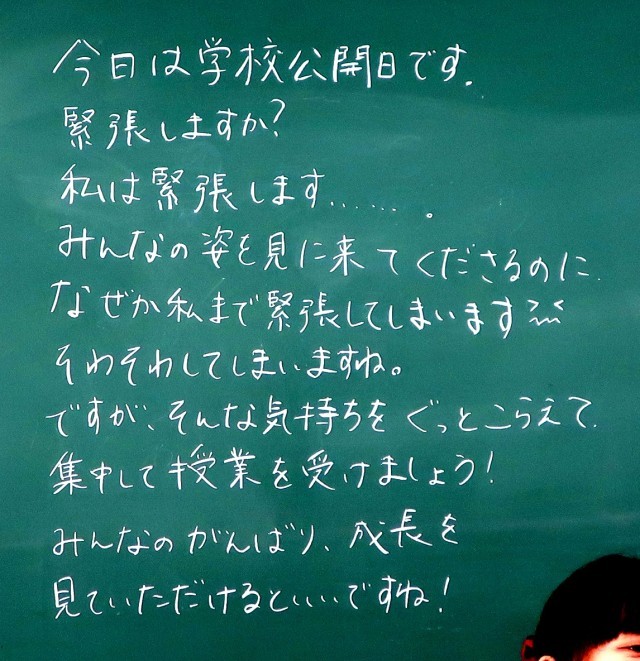 今日は学校公開日です.
緊張しますか?
私は緊張します……。
みんなの姿を見に来てくださるのに、
なぜか私まで緊張してしまいます><
そわそわしてしまいますね。
ですが、そんな気持ちをぐっとこらえて、
集中して授業を受けましょう!
みんなのがんばり、成長を
見ていただけるといいですね!